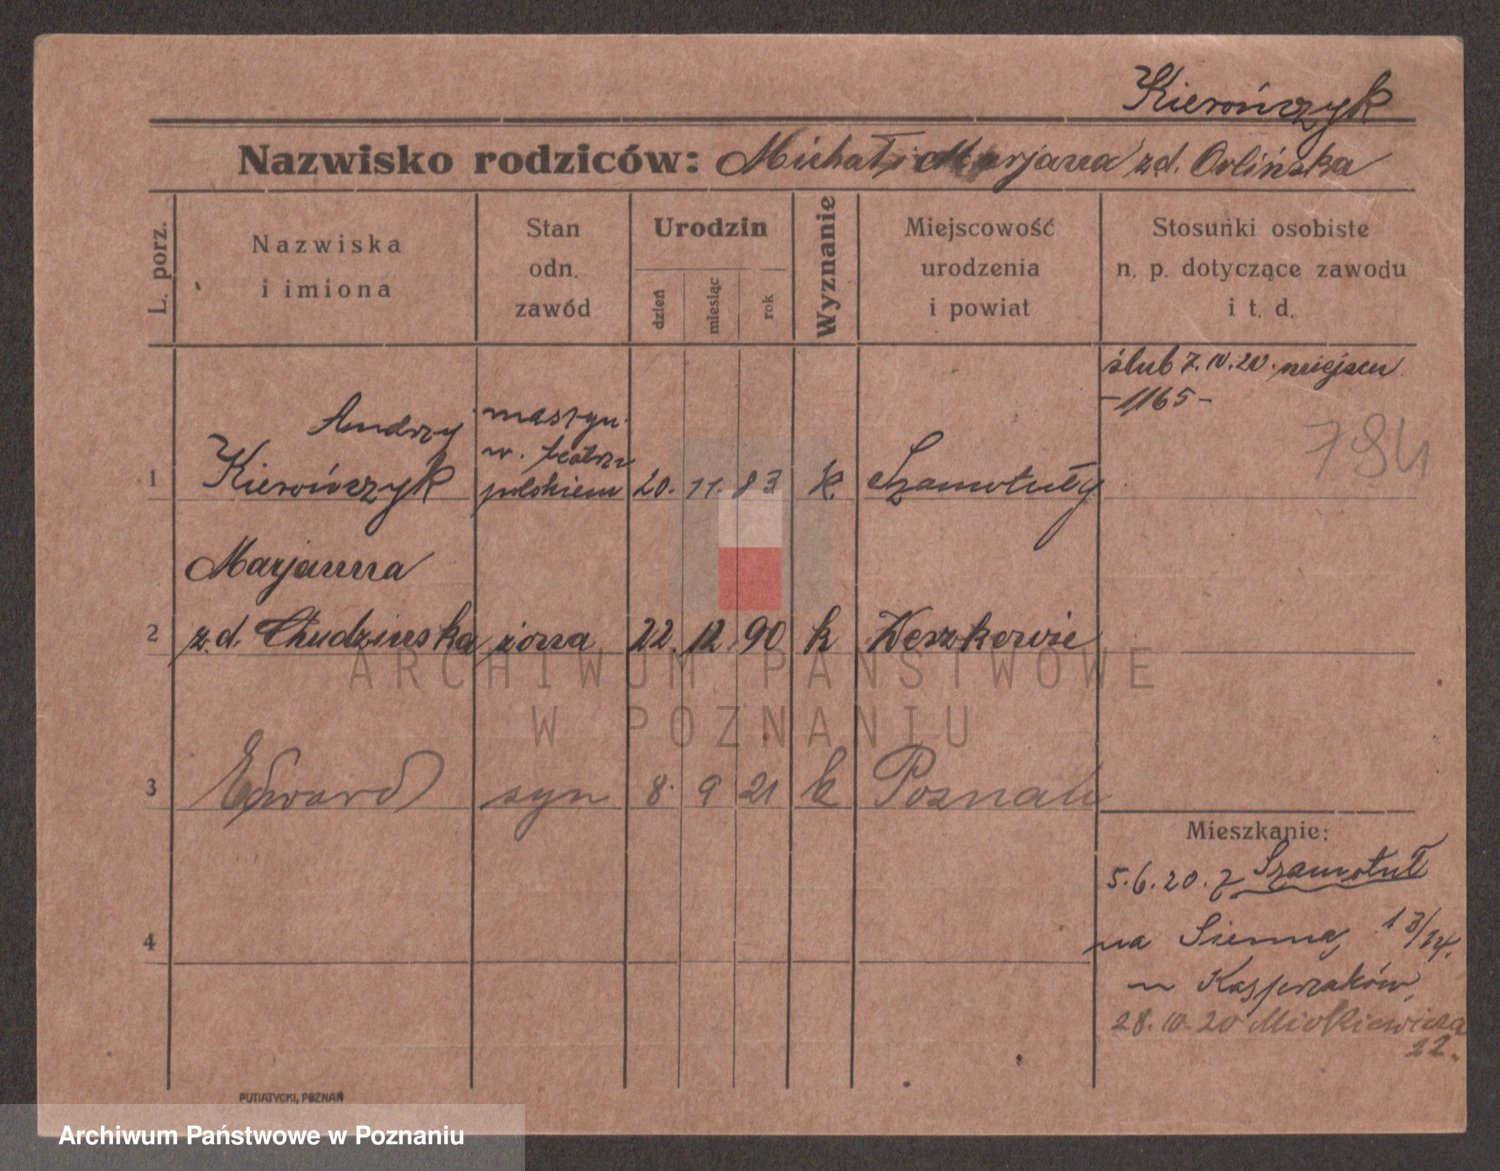 Kierończyk
Nazwisko rodziców: Michał i Marjanna zd. Orlińska
L. porz.
Nazwiska
i imiona
Stan
odn.
zawód
Urodzin
dzień
miesiąc
rok
Wyznanie
Miejscowość
urodzenia
i powiat
Stosunki osobiste
n. p. dotyczące zawodu
i t. d.
ślub 7.IV.20. miejscu
-1165-
794
1
Andrzej
Kierończyk
maszyn.
w. teatrze
polskiem
20. 11. 83
k.
Szamotuły
2
Marjanna
z.d. Chudzinska
żona
22. 12. 90
k
3
Edward
syn
8. 9 21
k
Poznań
4
Mieszkanie:
5.6.20. z Szamotuł
na Sienną 13/14.
u Kasprzaków
28.10.20 Mickiewicza
22.
ARCHIWUM PAŃSTWOWE
W POZNANIU
PUTIATYCKI, POZNAŃ
Archiwum Państwowe w Poznaniu